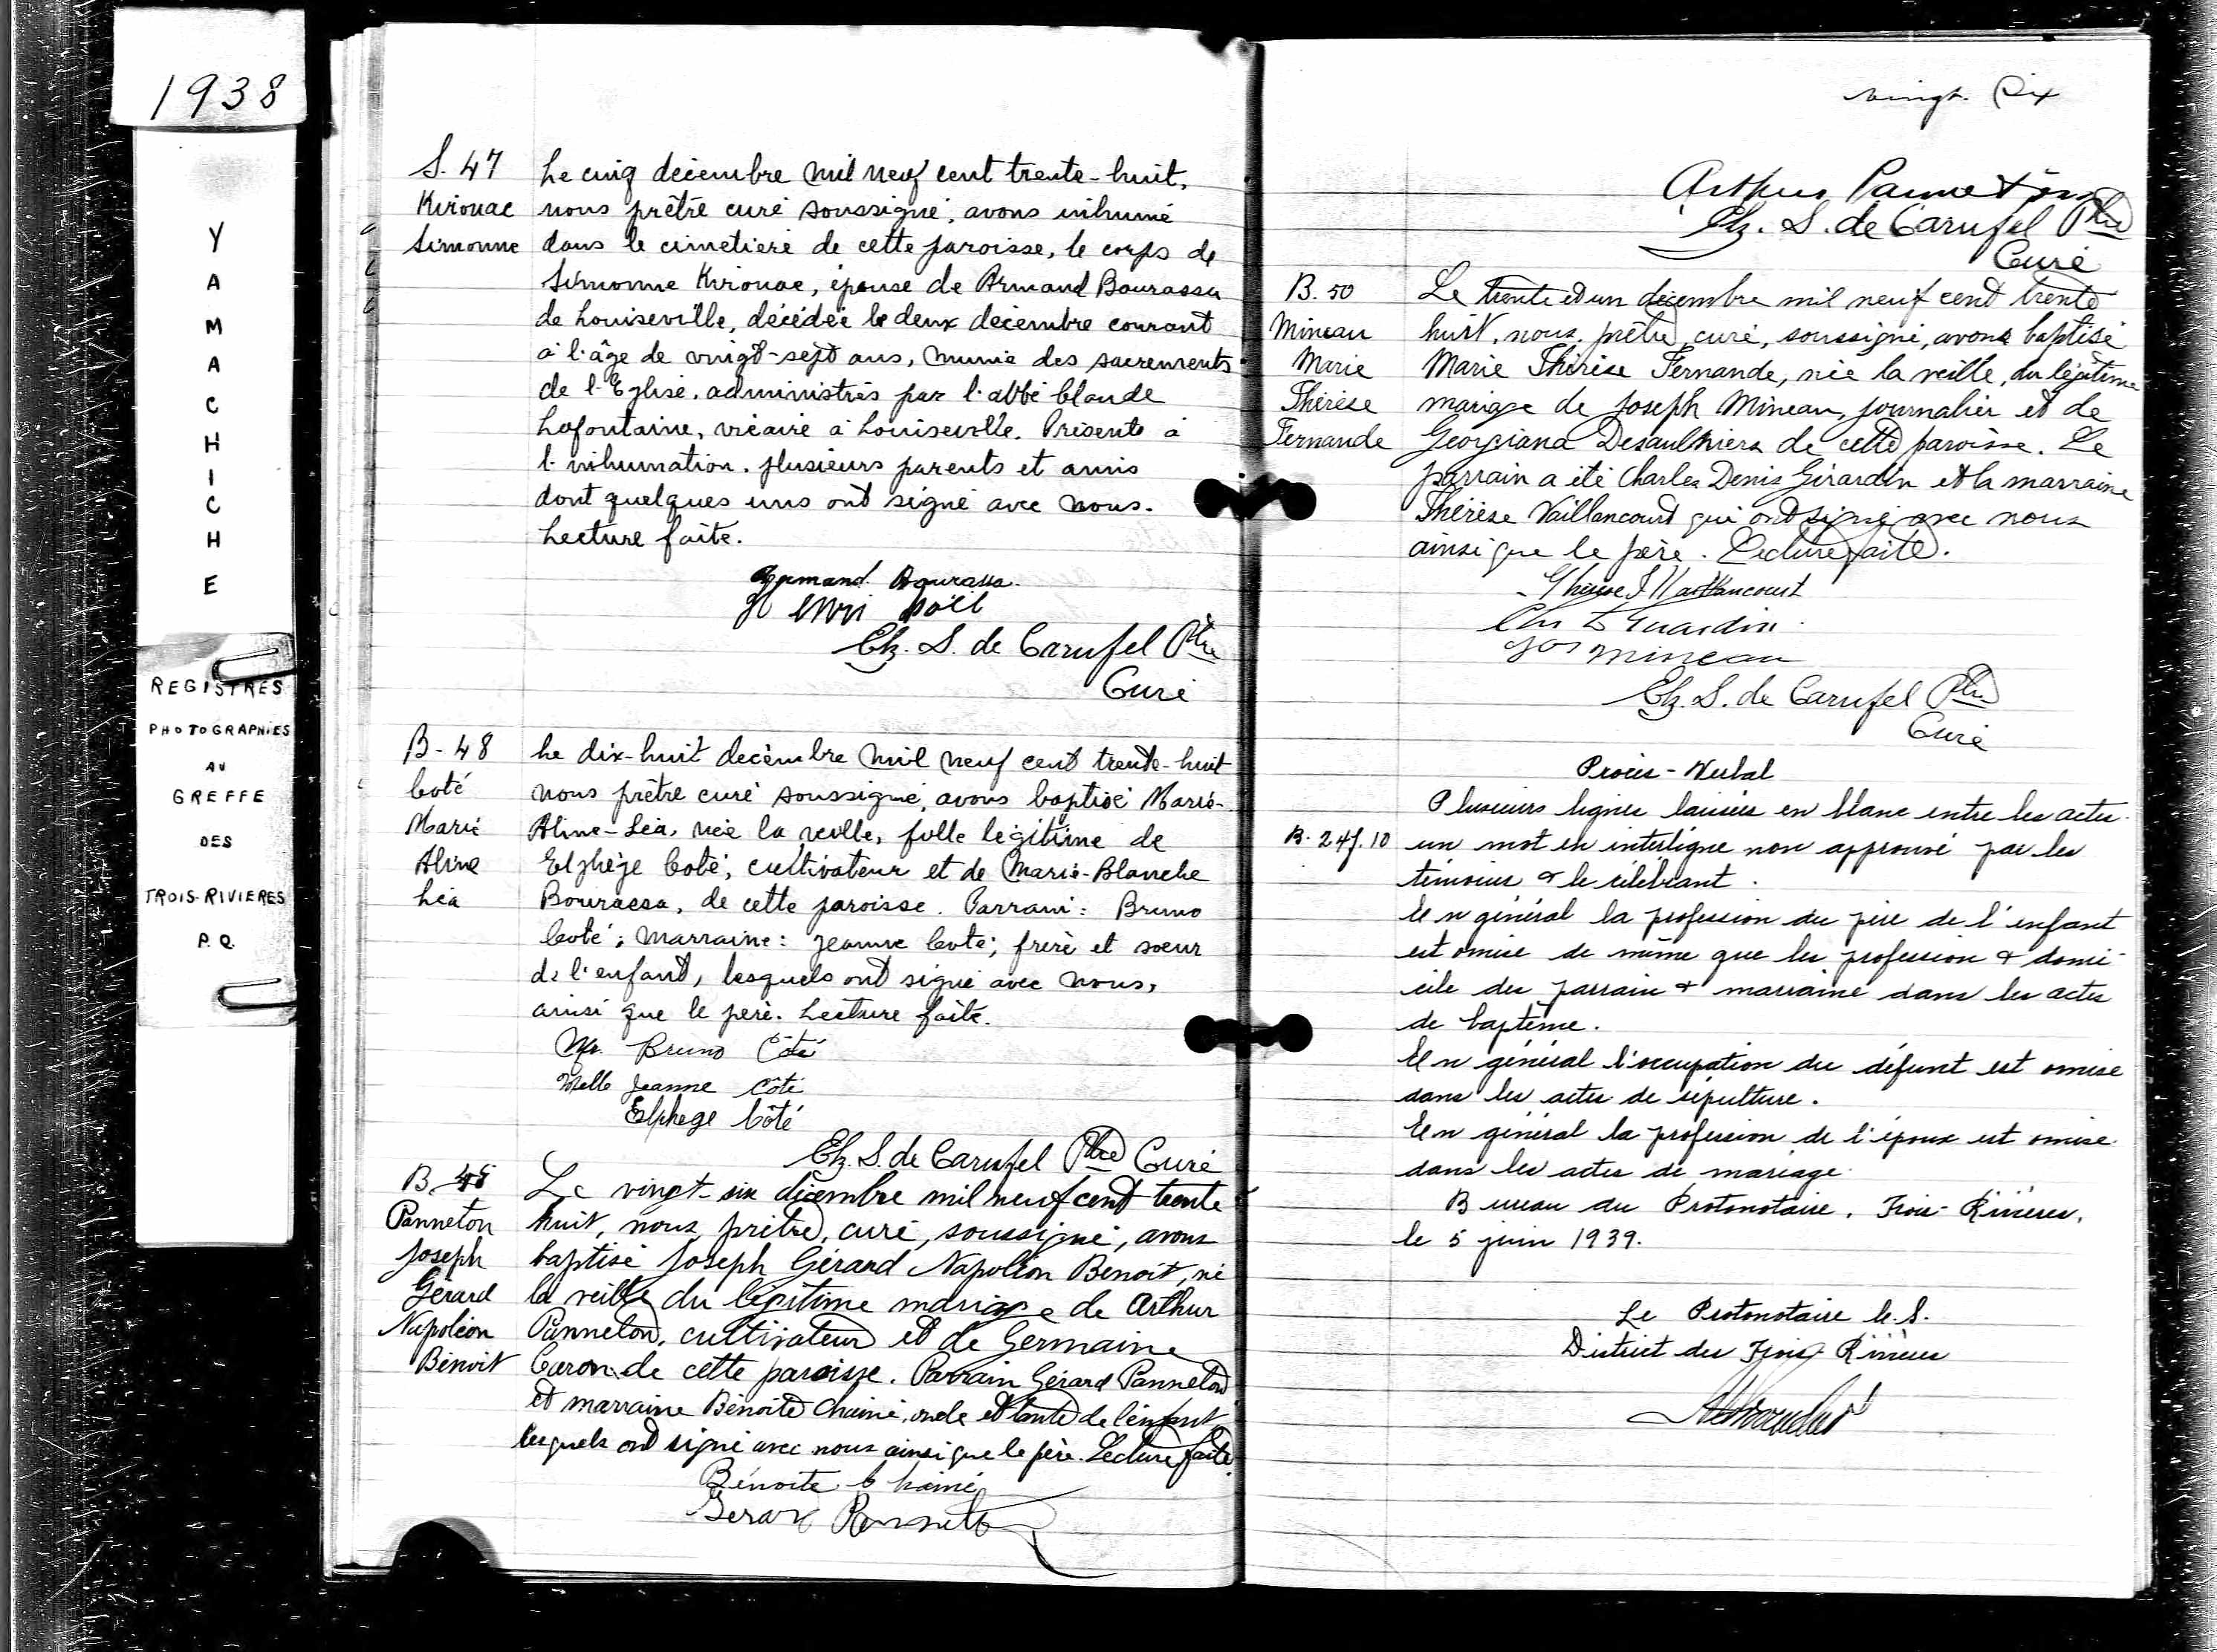 1938
YAMACHICHE
REGISTRES
PHOTOGRAPHIES
AU
GREFFE
DES
TROIS-RIVIERES
P.Q.
S. 47
Kirouac
Simonne
Le cinq décembre mil neuf cent trente-huit,
nous prêtre curé soussigné, avons inhumé
dans le cimetière de cette paroisse, le corps de
Simonne Kirouac, épouse de Armand Bourassa
de Louiseville, décédée le deux décembre courant
à l'âge de vingt-sept ans, munie des sacrements
de l'Eglise, administrés par l'abbé Claude
Lafontaine, vicaire à Louiseville. Présents à
l'inhumation, plusieurs parents et amis
dont quelques uns ont signé avec nous.
Lecture faite.
Armand Bourassa
Henri Noël
Ch. S. de Carufel Ptre
Curé
B-48
Coté
Marie
Aline
Léa
Le dix-huit décembre mil neuf cent trente-huit
nous prêtre curé soussigné, avons baptisé Marie-
Aline-Léa, née la veille, fille légitime de
Elphège Coté, cultivateur et de Marie-Blanche
Bourassa, de cette paroisse. Parrain: Bruno
Coté; Marraine: Jeanne Coté; frère et soeur
de l'enfant, lesquels ont signé avec nous,
ainsi que le père. Lecture faite.
Mr. Bruno Côté
Melle Jeanne Côté
Elphege Côté
Ch. S. de Carufel Ptre Curé
B
Panneton
Joseph
Gérard
Napoléon
Benoit
Le vingt-six décembre mil neuf cent trente
huit, nous, prêtre, curé, soussigné, avons
baptisé Joseph Gérard Napoléon Benoit, né
la veille du légitime mariage de Arthur
Panneton, cultivateur et de Germaine
Caron de cette paroisse. Parrain Gérard Panneton
et marraine Bénoite Chainé, oncle et tante de l'enfant
lesquels ont signé avec nous ainsi que le père. Lecture faite.
Bénoite Chainé
Gerard Panneton
vingt-six
Arthur Panneton
Ch. S. de Carufel Ptre
Curé
B. 50
Mineau
Marie
Thérèse
Fernande
Le trente et un décembre mil neuf cent trente
huit, nous, prêtre, curé, soussigné, avons baptisé
Marie Thérèse Fernande, née la veille, du légitime
mariage de Joseph Mineau, journalier et de
Georgiana Desaulniers de cette paroisse. Le
parrain a été Charles Denis Girardin et la marraine
Thérèse Vaillancourt qui ont signé avec nous
ainsi que le père. Lecture faite.
Thérèse Vaillancourt
Girardin
Jos Mineau
Ch. S. de Carufel Ptre
Curé
Procès-Verbal
Plusieurs lignes laissées en blanc entre les actes.
B. 24 f. 10 un mot en interligne non approuvé par les
témoins & le célébrant.
En général la profession du père de l'enfant
est omise de même que les profession & domi-
cile des parrain & marraine dans les actes
de baptême.
En général l'occupation du défunt est omise
dans les actes de sépulture.
En général la profession de l'époux est omise
dans les actes de mariage.
Bureau du Protonotaire, Trois-Rivières,
le 5 juin 1939.
Le Protonotaire C.S.
District des Trois-Rivières